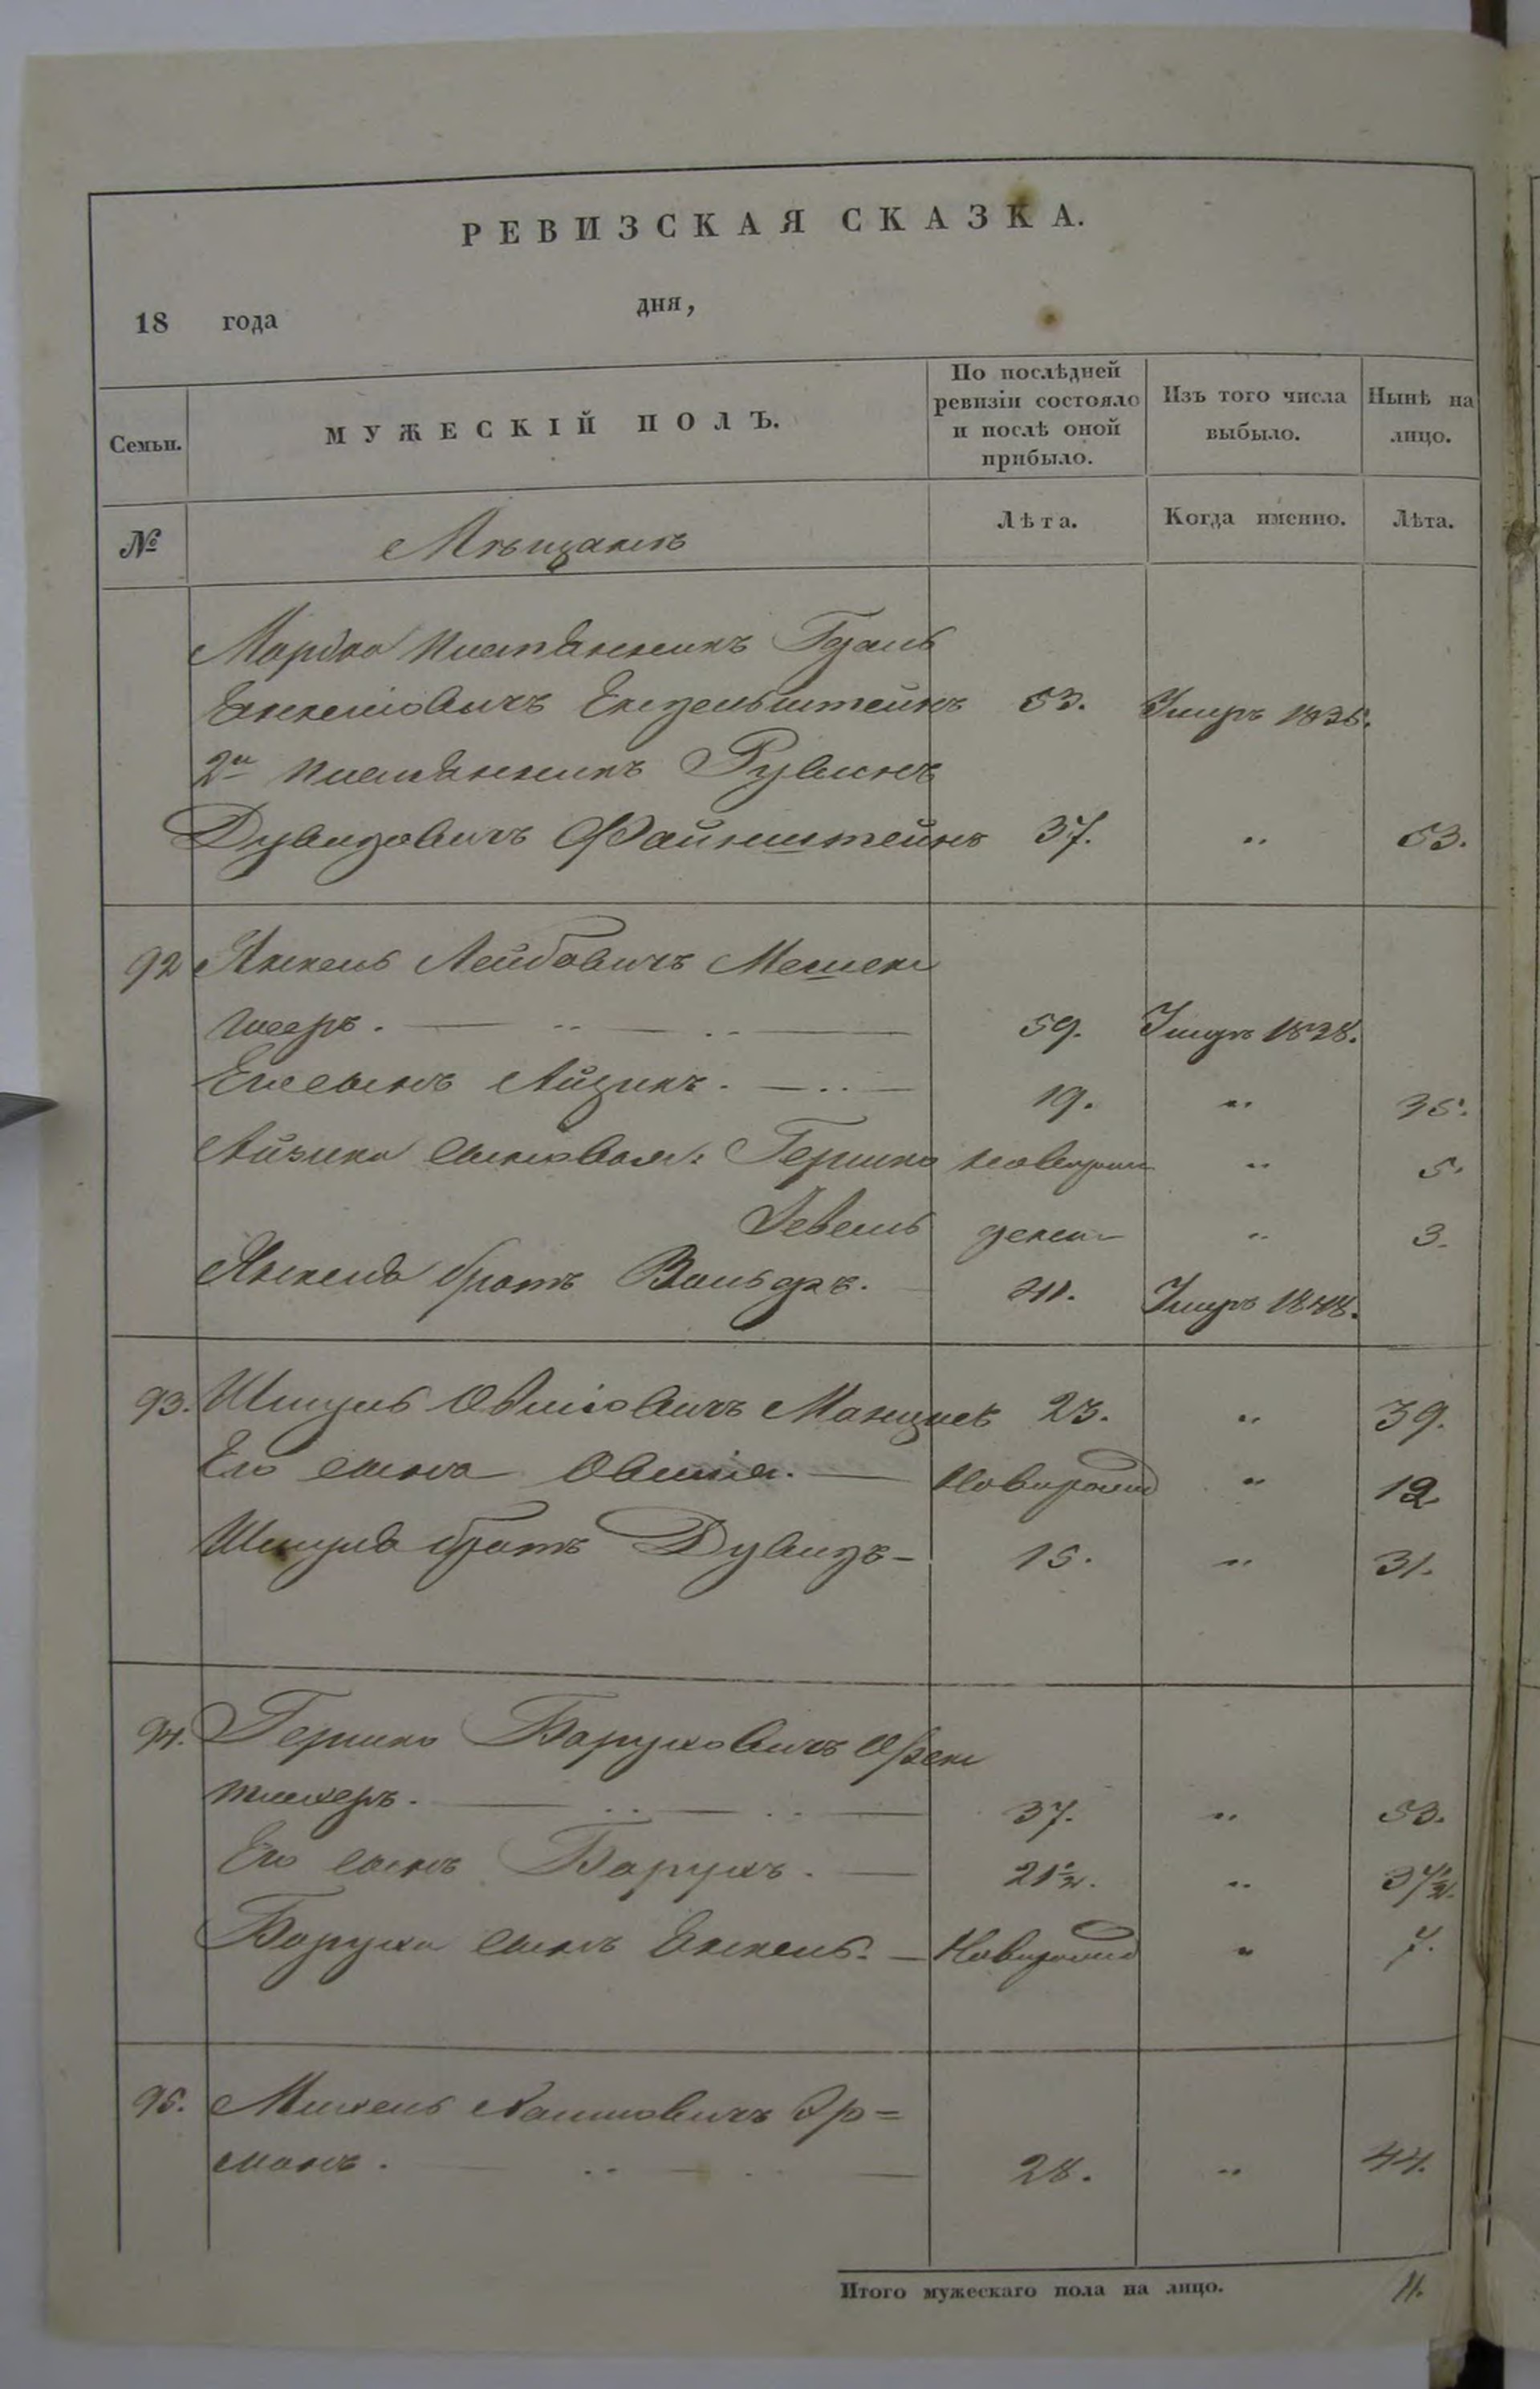 РЕВИЗСКАЯ СКАЗКА.
18 года дня,
Семьи. МУЖЕСКІЙ ПОЛЪ. По послѣдней ревизіи состояло и послѣ оной прибыло. Изъ того числа выбыло. Нынѣ на лицо.
№ Мѣщанѣ Лѣта. Когда именно. Лѣта.
племянникъ
Янкеліовичъ Ензельштейнъ 53. Умеръ 1836.
2й племянникъ Рувинъ
Дувидовичъ Файнштейнъ 37. " 53.
92 Янкель Лейбовичъ
59. Умеръ 1838.
Его сынъ Айзикъ. 19. " 35.
Айзика сыновья: Гершко новорожд " 5.
Зевель " 3.
Янкеля братъ Вольфъ. 41. Умеръ 1848.
93. Шмуль Овшіовичъ 23. " 39.
Его сынъ Овшія. Новорожд " 12
Шмуля братъ Дувидъ 15. " 31.
94. Гершко Баруховичъ
37. " 53.
Его сынъ Барухъ. 21½. " 37½.
Баруха сынъ Янкель. Новорожд " 7.
95. Михель Хаимовичъ Эр=
манъ. 28. " 44.
Итого мужескаго пола на лицо. 11.